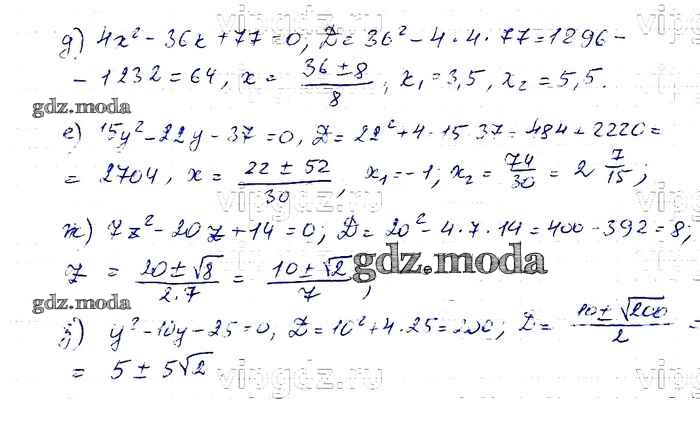 д) 4x² - 36x + 77 = 0, D = 36² - 4 · 4 · 77 = 1296 -
- 1232 = 64, x = (36 ± 8)/8, x₁ = 3,5, x₂ = 5,5.
gdz.moda
е) 15y² - 22y - 37 = 0, D = 22² + 4 · 15 · 37 = 484 + 2220 =
= 2704, x = (22 ± 52)/30, x₁ = -1; x₂ = 74/30 = 2 7/15;
ж) 7z² - 20z + 14 = 0; D = 20² - 4 · 7 · 14 = 400 - 392 = 8;
z = (20 ± √8)/(2·7) = (10 ± √2)/7;
gdz.moda
gdz.moda
з) y² - 10y - 25 = 0, D = 10² + 4 · 25 = 200; D = (10 ± √200)/2 =
= 5 ± 5√2
vipgdz.ru
vipgdz.ru
vipgdz.ru
vipgdz.ru